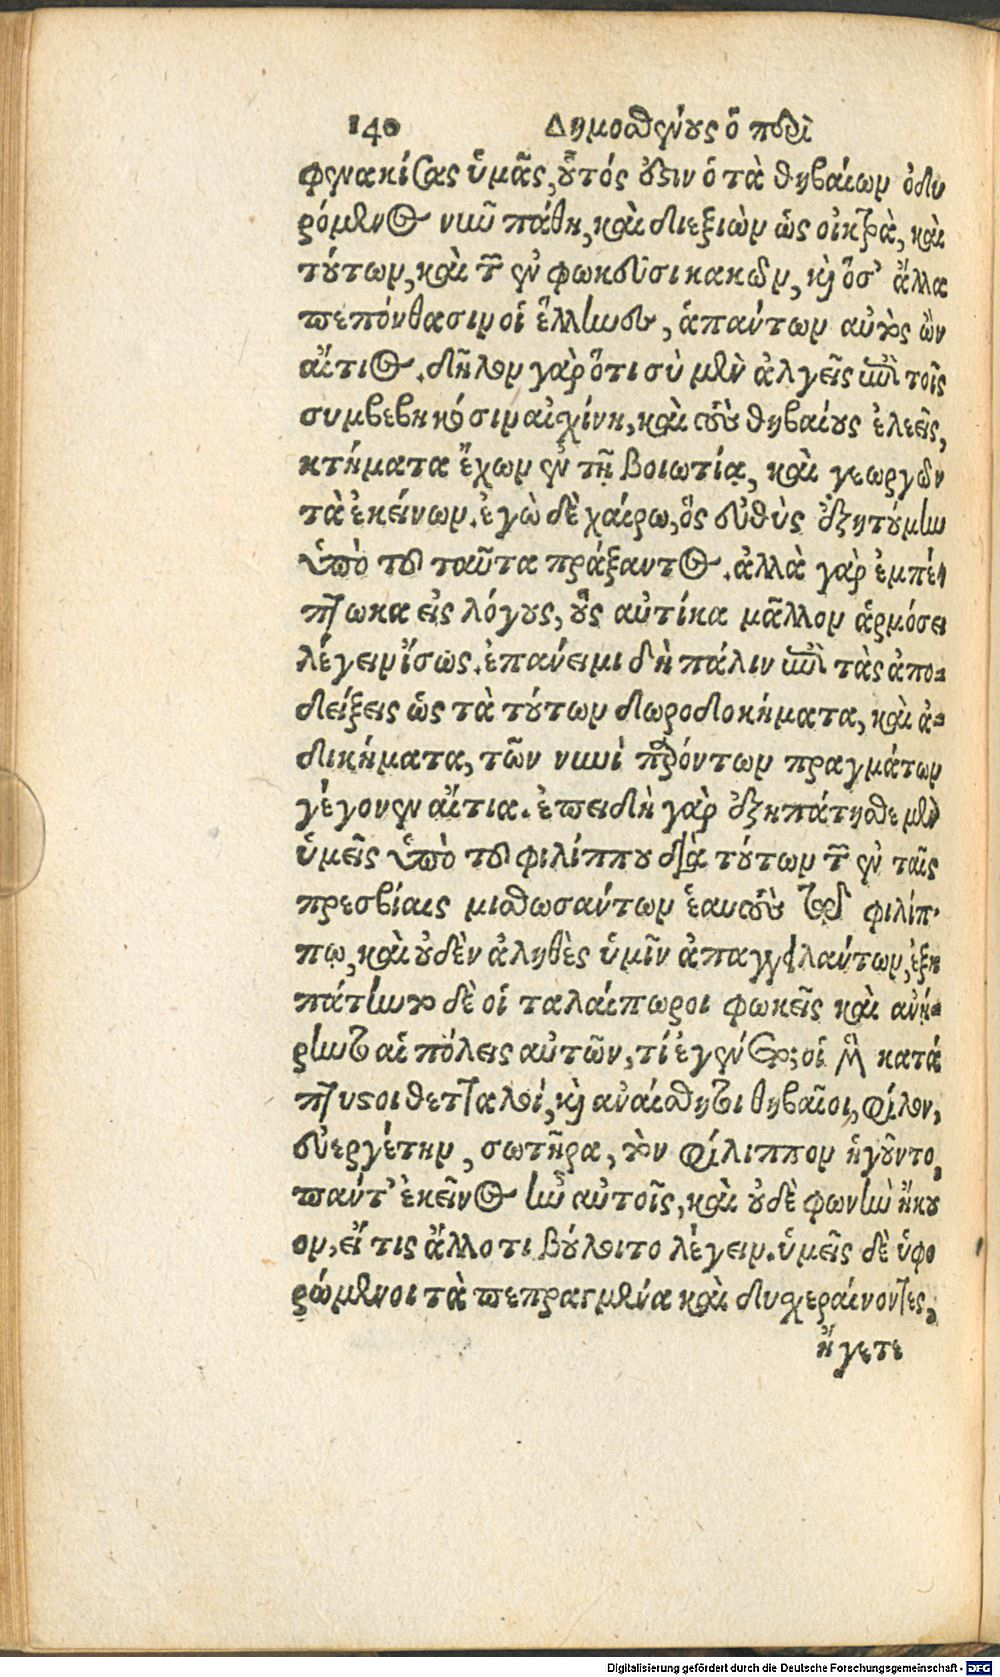 140 Δημοσθένους ὁ περὶ
φενακίσας ὑμᾶς, οὗτός ἐστιν ὁ τὰ θηβαίων ὀδυ
ρόμενος νῦν πάθη, καὶ διεξιὼν ὡς οἰκτρὰ, καὶ
τούτων, καὶ τῶν ἐν φωκεῦσι κακῶν, καὶ ὅσ' ἄλλα
πεπόνθασιν οἱ ἕλληνες, ἁπάντων αὐτὸς ὢν
αἴτιος. δῆλον γὰρ ὅτι σὺ μὲν ἀλγεῖς ἐπὶ τοῖς
συμβεβηκόσιν αἰσχίνη, καὶ τοὺς θηβαίους ἐλεεῖς,
κτήματα ἔχων ἐν τῇ βοιωτίᾳ, καὶ γεωργῶν
τὰ ἐκείνων. ἐγὼ δὲ χαίρω, ὃς εὐθὺς ἐξητούμην
ὑπὸ τοῦ ταῦτα πράξαντος. ἀλλὰ γὰρ ἐμπέ-
πτωκα εἰς λόγους, οὓς αὐτίκα μᾶλλον ἁρμόσει
λέγειν ἴσως. ἐπάνειμι δὴ πάλιν ἐπὶ τὰς ἀπο-
δείξεις ὡς τὰ τούτων δωροδοκήματα, καὶ ἀ-
δικήματα, τῶν νυνὶ παρόντων πραγμάτων
γέγονεν αἴτια. ἐπειδὴ γὰρ ἐξηπάτησθε μὲν
ὑμεῖς ὑπὸ τοῦ φιλίππου διὰ τούτων τῶν ἐν ταῖς
πρεσβίαις μισθωσάντων ἑαυτοὺς τῷ φιλίπ-
πῳ, καὶ οὐδὲν ἀληθὲς ὑμῖν ἀπαγγειλάντων, ἐξη
πάτηντο δὲ οἱ ταλαίπωροι φωκεῖς καὶ ἀνή-
ρηντο αἱ πόλεις αὐτῶν, τί ἐγένετο; οἱ μὲν κατά
πτυστοι θετταλοί, καὶ ἀναίσθητοι θηβαῖοι, φίλον,
εὐεργέτην, σωτῆρα, τὸν φίλιππον ἡγοῦντο,
πάντ' ἐκεῖνος ἦν αὐτοῖς, καὶ οὐδὲ φωνὴν ἤκου
ον, εἴ τις ἄλλο τι βούλοιτο λέγειν. ὑμεῖς δὲ ὑφο
ρώμενοι τὰ πεπραγμένα καὶ δυσχεραίνοντες,
ἤγετε
Digitalisierung gefördert durch die Deutsche Forschungsgemeinschaft - DFG